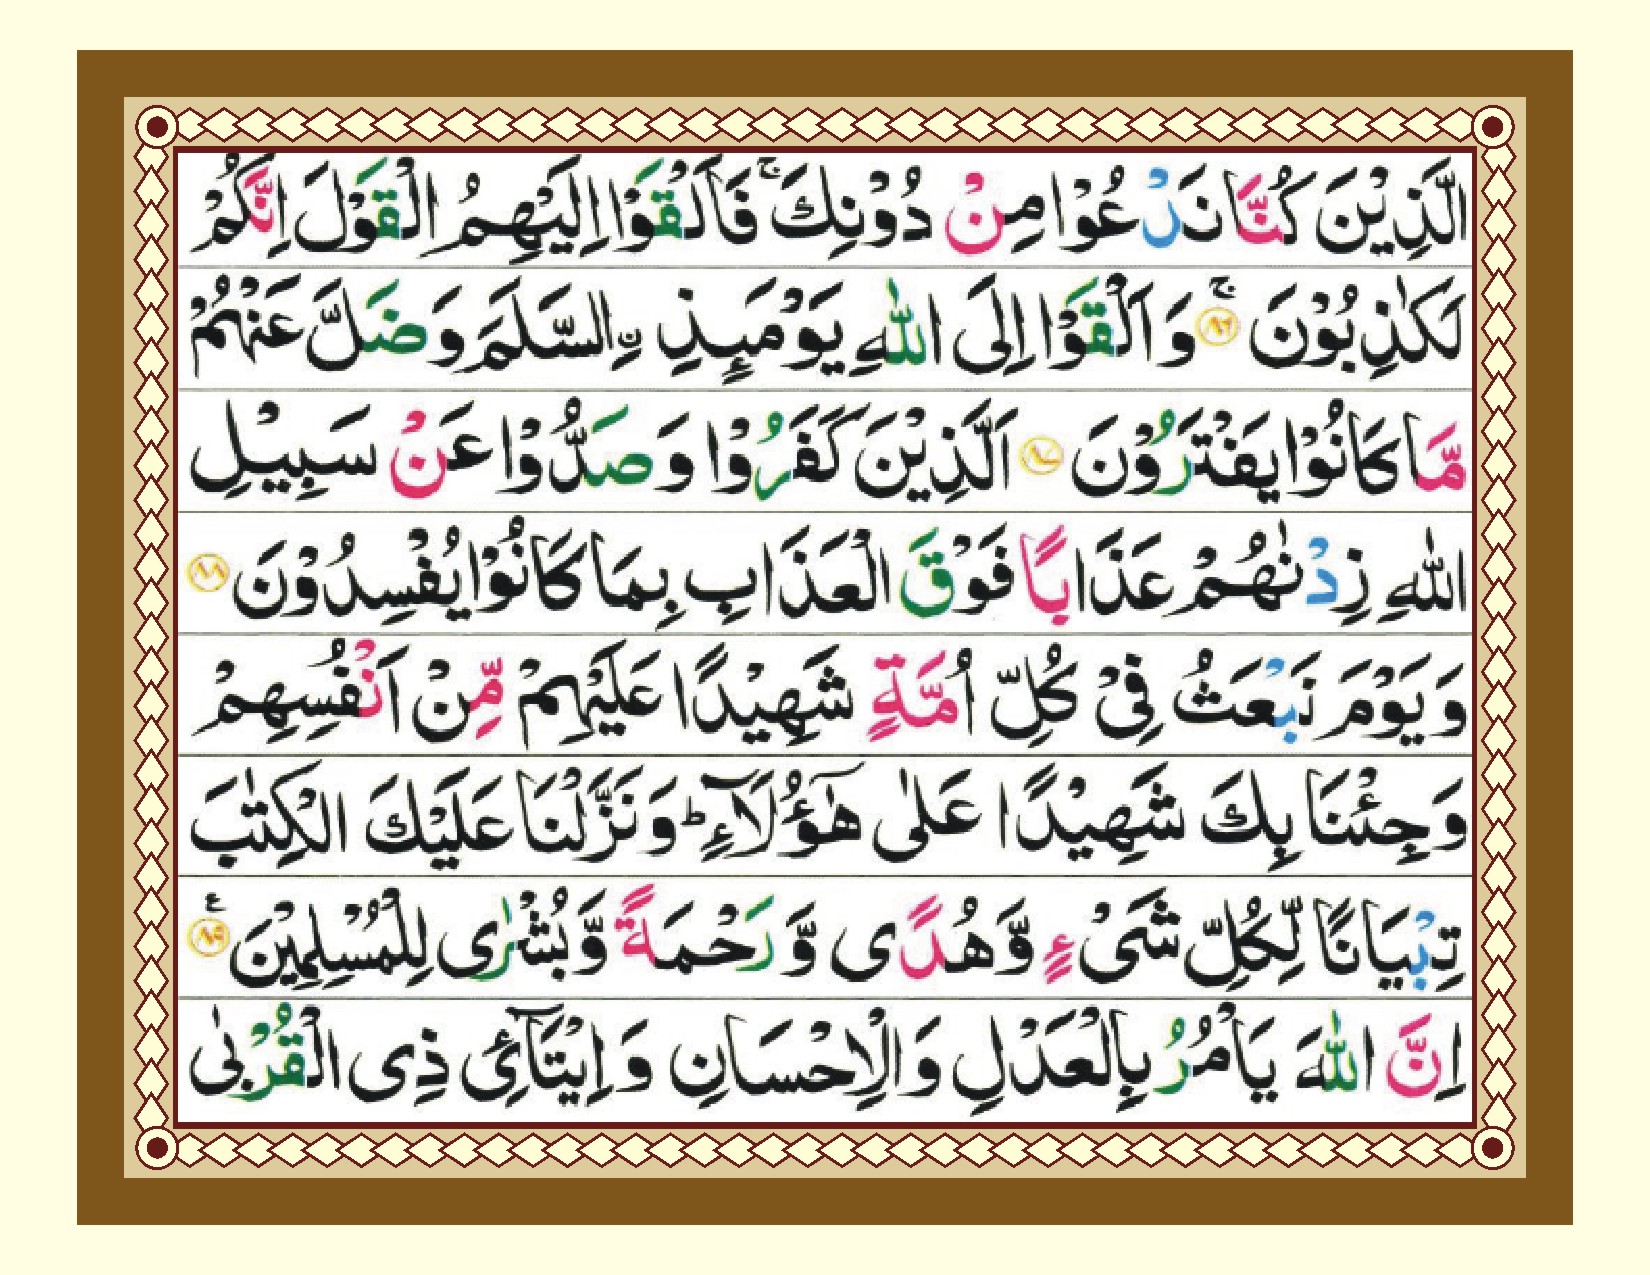 الَّذِيْنَ كُنَّا نَدْعُوْا مِنْ دُوْنِكَ ۚ فَاَلْقَوْا اِلَيْهِمُ الْقَوْلَ اِنَّكُمْ
لَكٰذِبُوْنَ ۚ ﴿۸۶﴾ وَ اَلْقَوْا اِلَى اللّٰهِ يَوْمَىِٕذِ ِۨالسَّلَمَ وَ ضَلَّ عَنْهُمْ
مَّا كَانُوْا يَفْتَرُوْنَ ﴿۸۷﴾ اَلَّذِيْنَ كَفَرُوْا وَ صَدُّوْا عَنْ سَبِيْلِ
اللّٰهِ زِدْنٰهُمْ عَذَابًا فَوْقَ الْعَذَابِ بِمَا كَانُوْا يُفْسِدُوْنَ ﴿۸۸﴾
وَ يَوْمَ نَبْعَثُ فِيْ كُلِّ اُمَّةٍ شَهِيْدًا عَلَيْهِمْ مِّنْ اَنْفُسِهِمْ
وَ جِئْنَا بِكَ شَهِيْدًا عَلٰى هٰۤؤُلَآءِ ؕ وَ نَزَّلْنَا عَلَيْكَ الْكِتٰبَ
تِبْيَانًا لِّكُلِّ شَيْءٍ وَّ هُدًى وَّ رَحْمَةً وَّ بُشْرٰى لِلْمُسْلِمِيْنَ ﴿۸۹﴾ ع
اِنَّ اللّٰهَ يَاْمُرُ بِالْعَدْلِ وَ الْاِحْسَانِ وَ اِيْتَآئِ ذِى الْقُرْبٰى